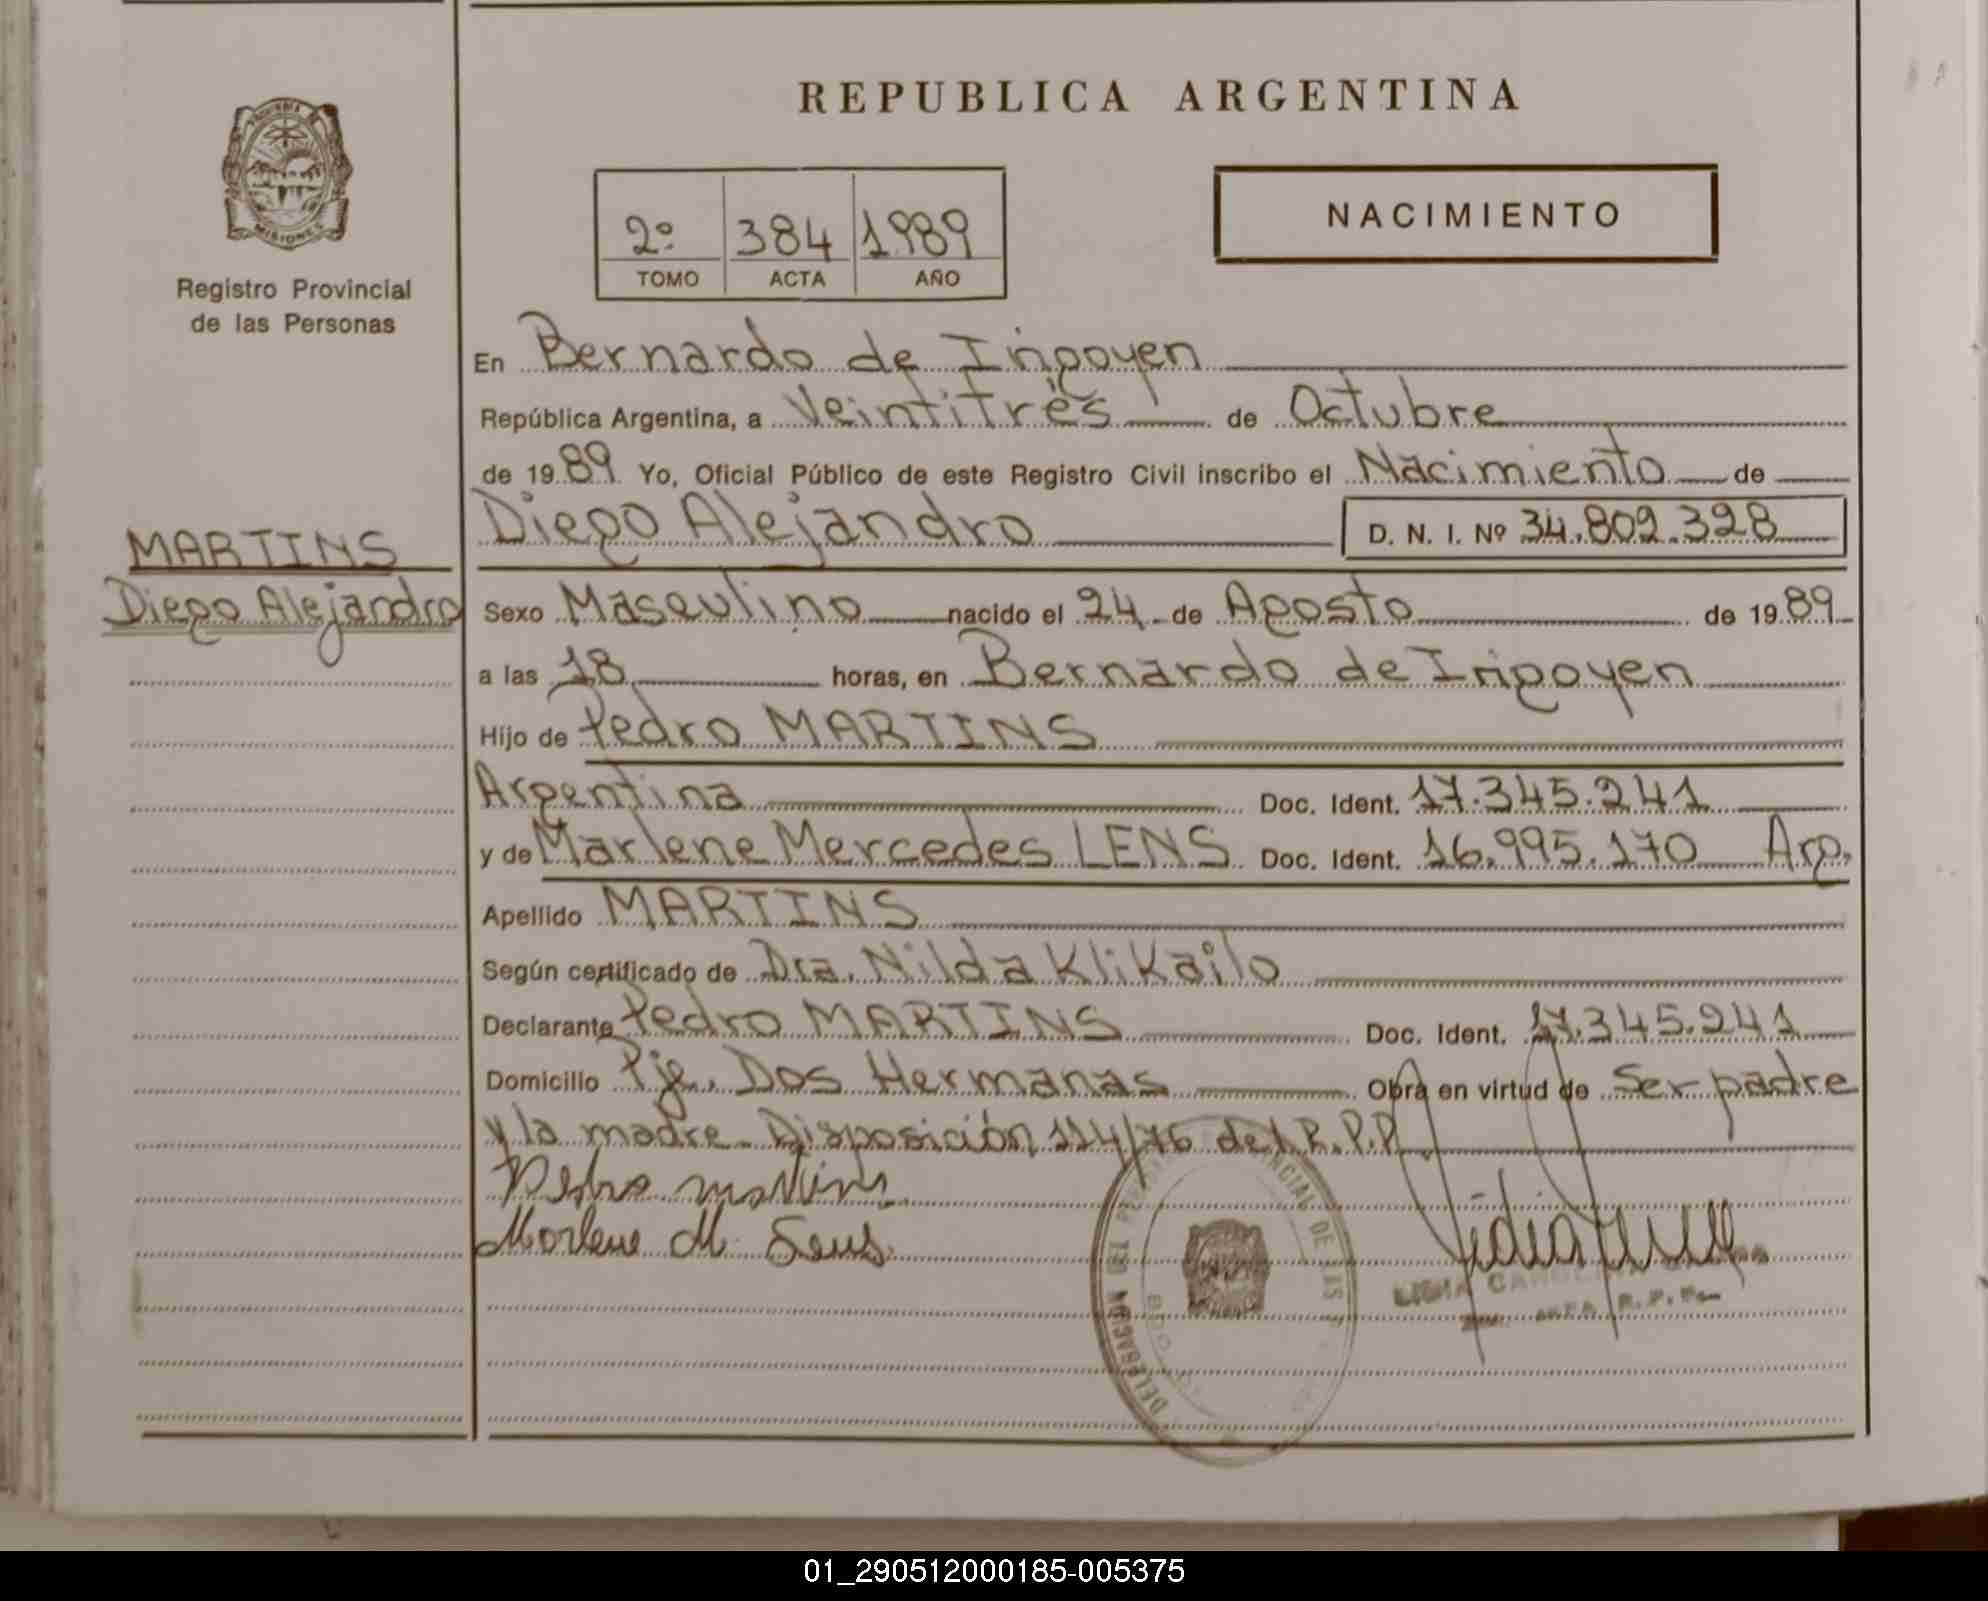 REPUBLICA ARGENTINA
NACIMIENTO
2º 384 1989
TOMO ACTA AÑO
MISIONES
Registro Provincial
de las Personas
En Bernardo de Irigoyen
República Argentina, a Veintitrés de Octubre
de 1989 Yo, Oficial Público de este Registro Civil inscribo el Nacimiento de
Diego Alejandro D. N. I. Nº 34.802.328
MARTINS
Diego Alejandro
Sexo Masculino nacido el 24 de Agosto de 1989
a las 18 horas, en Bernardo de Irigoyen
Hijo de Pedro MARTINS
Argentina Doc. Ident. 17.345.241
y de Marlene Mercedes LENS Doc. Ident. 16.995.170 Arg.
Apellido MARTINS
Según certificado de Dra. Nilda Klikailo
Declarante Pedro MARTINS Doc. Ident. 17.345.241
Domicilio Pje. Dos Hermanas Obra en virtud de Ser padre
y la madre. Disposición 114/76 del R.P.P
Pedro Martins
Marlene M. Lens
DELEGACION DEL PROVINCIAL DE LAS
R.P.P.
01_290512000185-005375